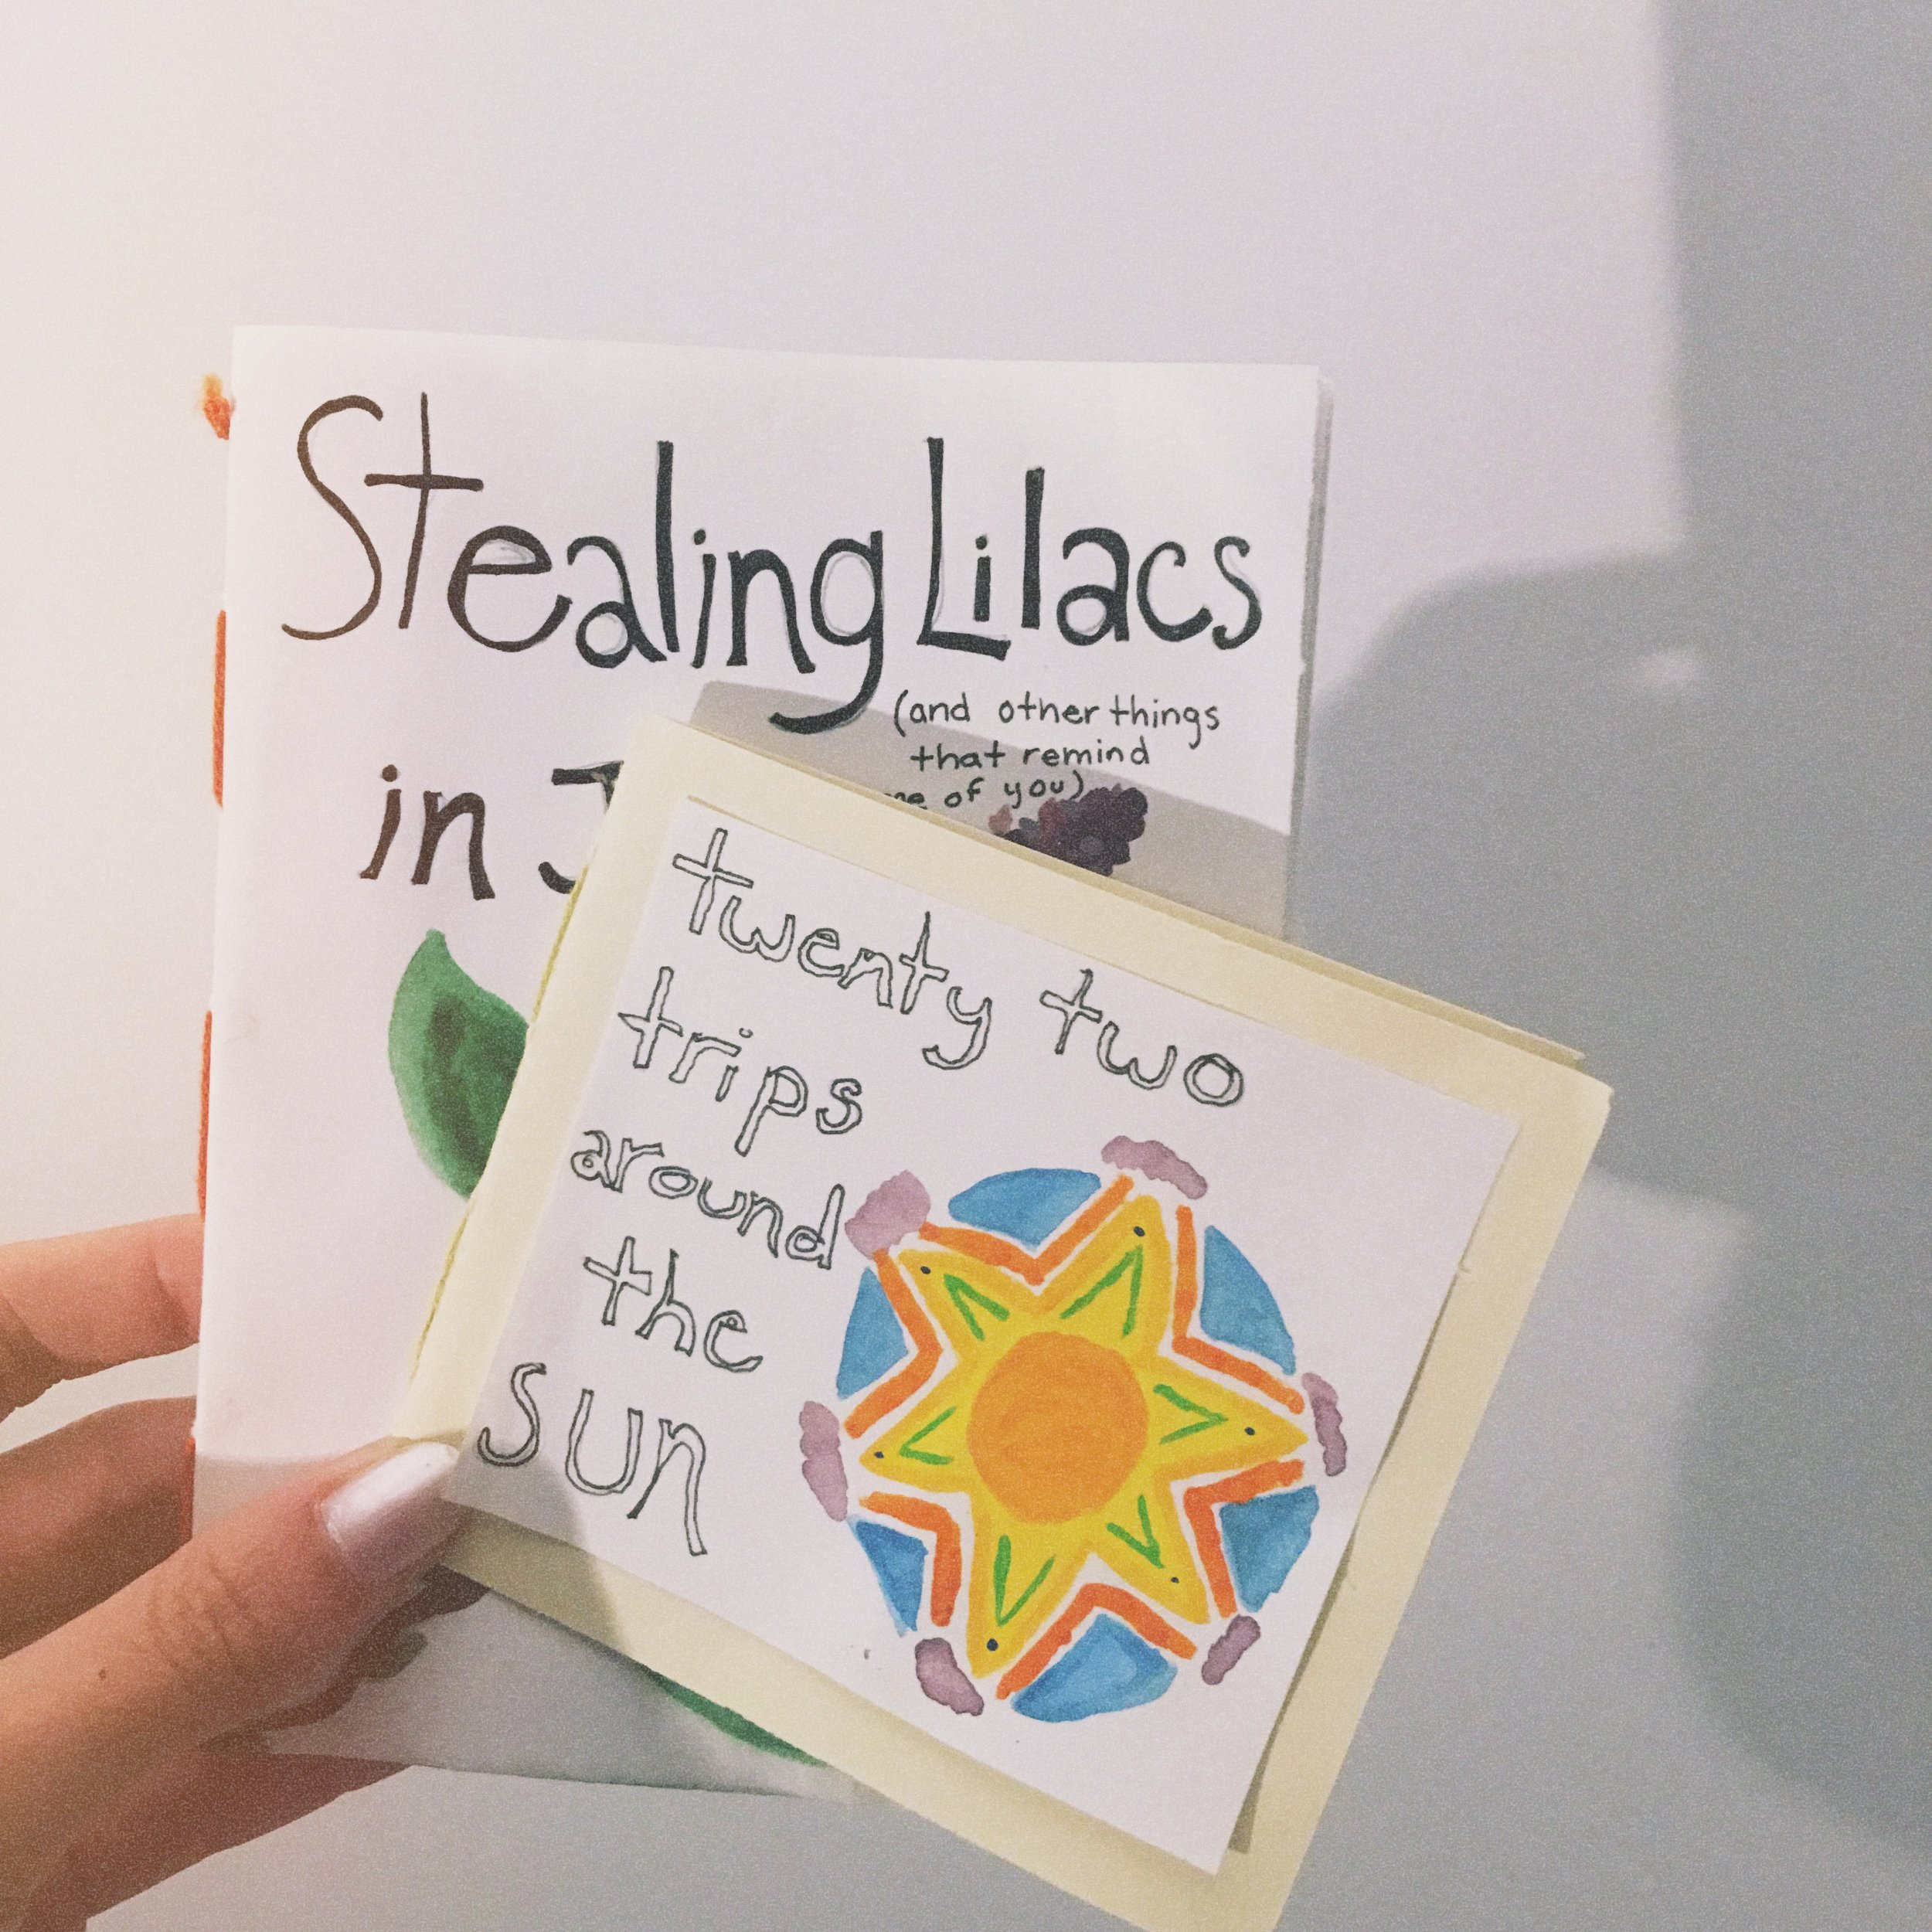 Stealing Lilacs
(and other things
that remind
of you)
in
twenty two
trips
around
the
sun